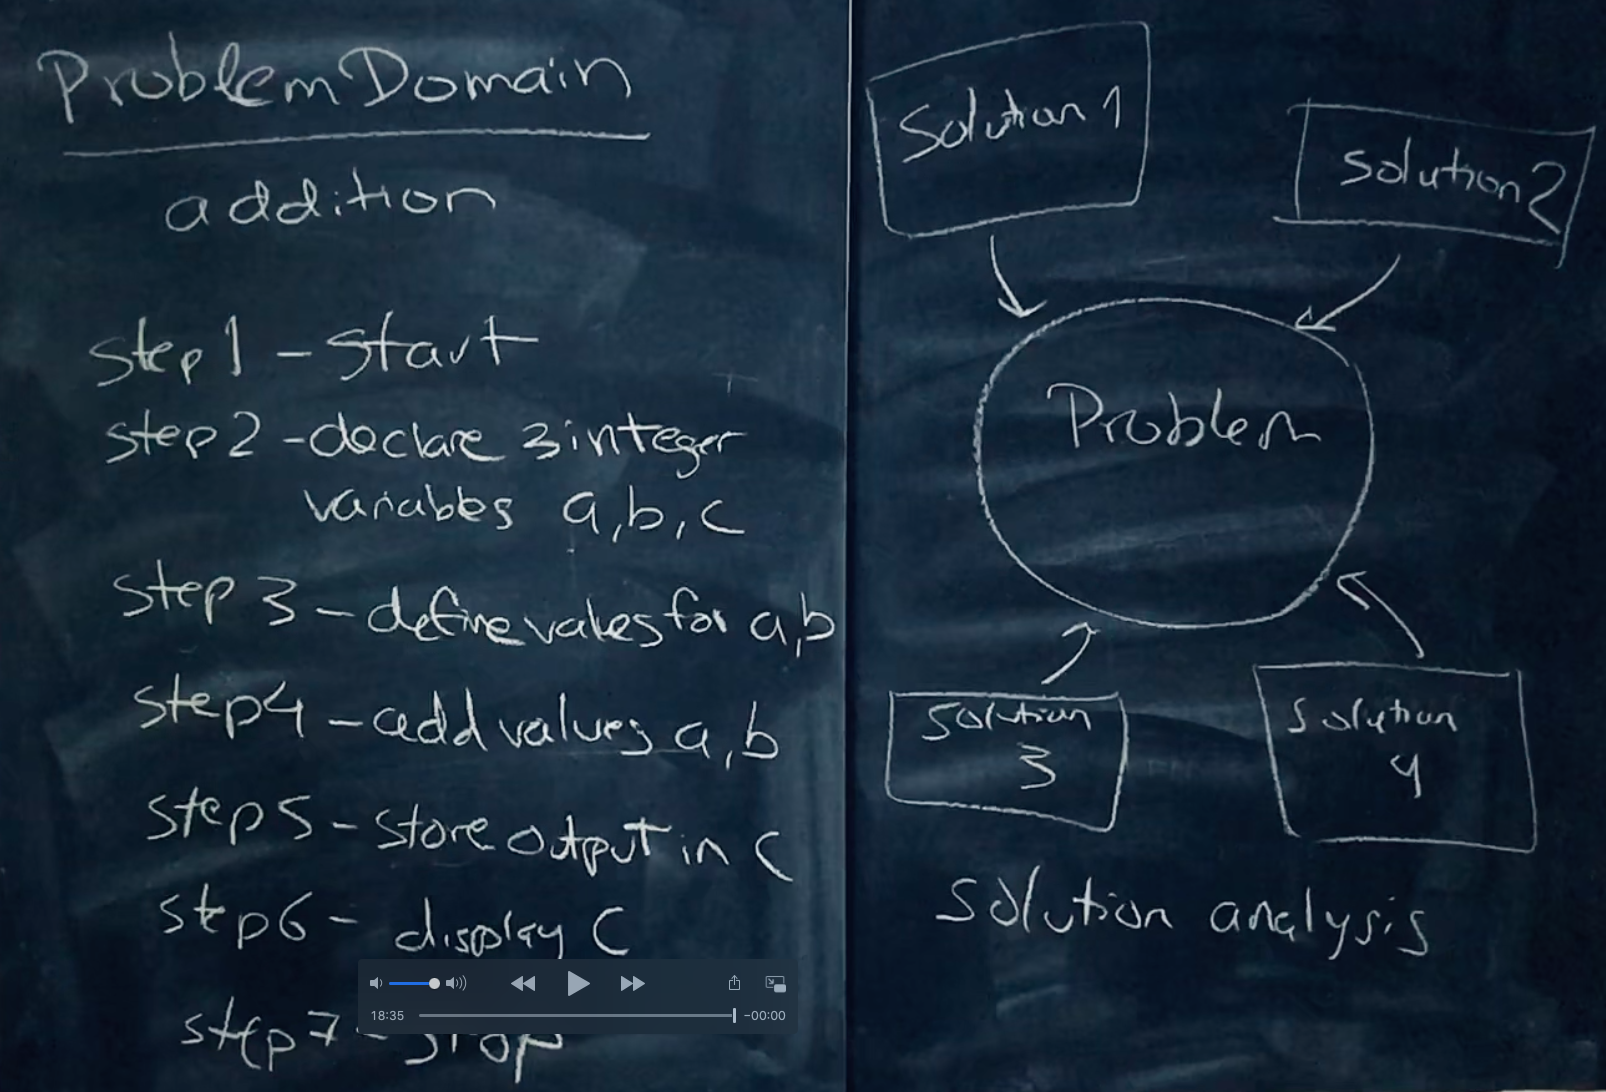 Problem Domain
addition
step 1 - start
step 2 - declare 3 integer
variables a, b, c
step 3 - define values for a, b
step 4 - add values a, b
step 5 - store output in c
step 6 - display c
step 7 - stop
Solution 1
solution 2
Problem
solution
3
solution
4
solution analysis
18:35
-00:00